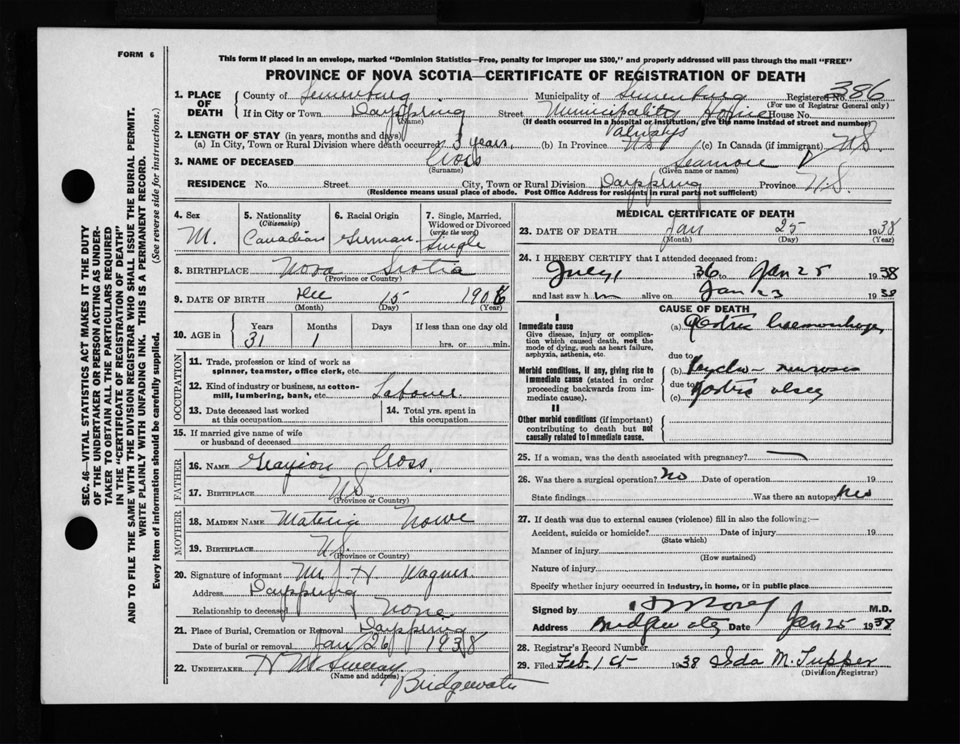 FORM 6
This form if placed in an envelope, marked "Dominion Statistics—Free, penalty for improper use $300," and properly addressed will pass through the mail "FREE"
PROVINCE OF NOVA SCOTIA—CERTIFICATE OF REGISTRATION OF DEATH
1. PLACE OF DEATH
County of Lunenburg Municipality of Lunenburg Registered No. 386
(For use of Registrar General only)
If in City or Town Dayspring Street Municipality Home House No.
(Name) (If death occurred in a hospital or institution, give the name instead of street and number)
2. LENGTH OF STAY (in years, months and days) always
(a) In City, Town or Rural Division where death occurred 3 years. (b) In Province N.S. (c) In Canada (if immigrant) N.S.
3. NAME OF DECEASED Cross
(Surname) (Given name or names)
RESIDENCE No. Street City, Town or Rural Division Dayspring Province N.S.
(Residence means usual place of abode. Post Office Address for residents in rural parts not sufficient)
4. Sex
M.
5. Nationality
(Citizenship)
Canadian
6. Racial Origin
German
7. Single, Married, Widowed or Divorced
(write the word)
Single
8. BIRTHPLACE Nova Scotia
(Province or Country)
9. DATE OF BIRTH Dec 15 1906
(Month) (Day) (Year)
10. AGE in
Years Months Days If less than one day old
31 1 hrs. or min.
OCCUPATION
11. Trade, profession or kind of work as
spinner, teamster, office clerk, etc.
12. Kind of industry or business, as cotton-
mill, lumbering, bank, etc. Labourer.
13. Date deceased last worked
at this occupation
14. Total yrs. spent in
this occupation
15. If married give name of wife
or husband of deceased
FATHER
16. NAME Cross.
17. BIRTHPLACE N.S.
(Province or Country)
MOTHER
18. MAIDEN NAME Nowe
19. BIRTHPLACE N.S.
(Province or Country)
20. Signature of informant Mr. J. H Wagner.
Address Dayspring
Relationship to deceased None
21. Place of Burial, Cremation or Removal Dayspring
Date of burial or removal Jan 26 1938
22. UNDERTAKER
(Name and address)
Bridgewater
MEDICAL CERTIFICATE OF DEATH
23. DATE OF DEATH Jan 25 1938
(Month) (Day) (Year)
24. I HEREBY CERTIFY that I attended deceased from:
July 1936 to Jan 25 1938
and last saw him alive on Jan 23 1938
CAUSE OF DEATH
I
Immediate cause
Give disease, injury or complication which caused death, not the mode of dying, such as heart failure, asphyxia, asthenia, etc.
(a) Gastric haemorrhage,
due to
Morbid conditions, if any, giving rise to immediate cause (stated in order proceeding backwards from immediate cause).
(b) Psycho-neurosis
due to
(c) Gastric ulcer
II
Other morbid conditions (if important) contributing to death but not causally related to immediate cause.
25. If a woman, was the death associated with pregnancy?
26. Was there a surgical operation? No Date of operation 19
State findings Was there an autopsy
27. If death was due to external causes (violence) fill in also the following:—
Accident, suicide or homicide? Date of injury 19
(State which)
Manner of injury
(How sustained)
Nature of injury
Specify whether injury occurred in industry, in home, or in public place
Signed by M.D.
Address Bridgewater Date Jan 25 1938
28. Registrar's Record Number
29. Filed Feb. 1938 Ida M. Tupper
(Division Registrar)
SEC. 46—VITAL STATISTICS ACT MAKES IT THE DUTY
OF THE UNDERTAKER OR PERSON ACTING AS UNDER-
TAKER TO OBTAIN ALL THE PARTICULARS REQUIRED
IN THE "CERTIFICATE OF REGISTRATION OF DEATH"
AND TO FILE THE SAME WITH THE DIVISION REGISTRAR WHO SHALL ISSUE THE BURIAL PERMIT.
WRITE PLAINLY WITH UNFADING INK. THIS IS A PERMANENT RECORD.
Every item of information should be carefully supplied. (See reverse side for instructions.)